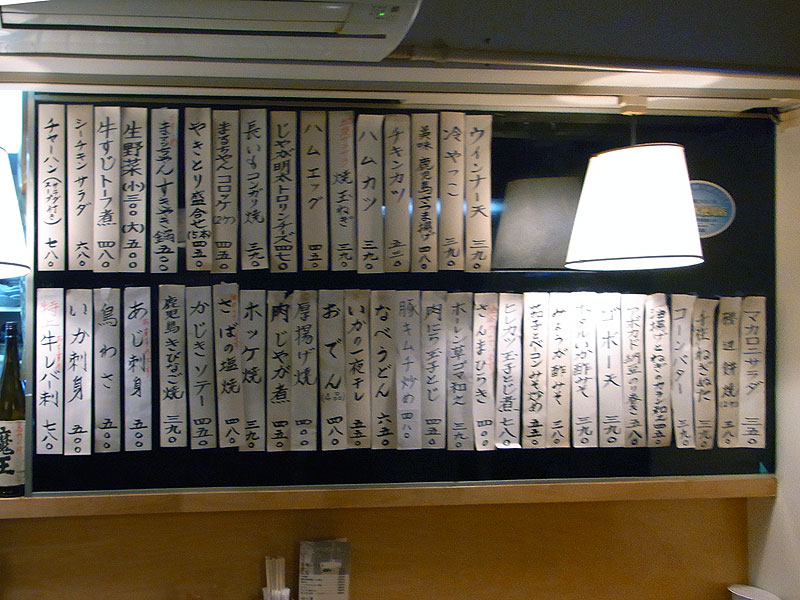 ウインナー天 三九〇
冷やっこ 三九〇
美味 鹿児島さつま揚げ 四八〇
チキンカツ 五二〇
ハムカツ 三九〇
焼玉ねぎ 三九〇
ハムエッグ 四五〇
じゃが明太トロリンチーズ 四七〇
長いもコンガリ焼 三九〇
まるちゃんコロッケ(2ケ) 四五〇
やきとり盛合せ(5本) 四五〇
まるちゃんすきやき鍋 五五〇
生野菜(小)三〇〇(大)五〇〇
牛すじトーフ煮 四八〇
シーチキンサラダ 六八〇
チャーハン(サラダ スープ付き) 七八〇
マカロニサラダ 三五〇
磯辺餅焼(2ケ) 三八〇
コーンバター 三九〇
アボカド納豆のり巻き 五八〇
ゴボー天 三九〇
ホタルいか酢みそ 三九〇
みょうが酢みそ 三九〇
茄子とベーコンみそ炒め 五五〇
ヒレカツ玉子とじ煮 七八〇
さんまひらき 四〇〇
ホーレン草ゴマ和え 三九〇
肉にら玉子とじ 四五〇
豚キムチ炒め 四八〇
なべうどん 六五〇
いかの一夜干し 五五〇
おでん 四五〇
厚揚げ焼 四五〇
肉じゃが煮 四五〇
ホッケ焼 三九〇
さばの塩焼 四八〇
かじきソテー 四五〇
鹿児島きびなご焼 三九〇
あじ刺身 五五〇
鳥わさ 五〇〇
いか刺身 五五〇
特上牛レバー刺 七八〇
魔王